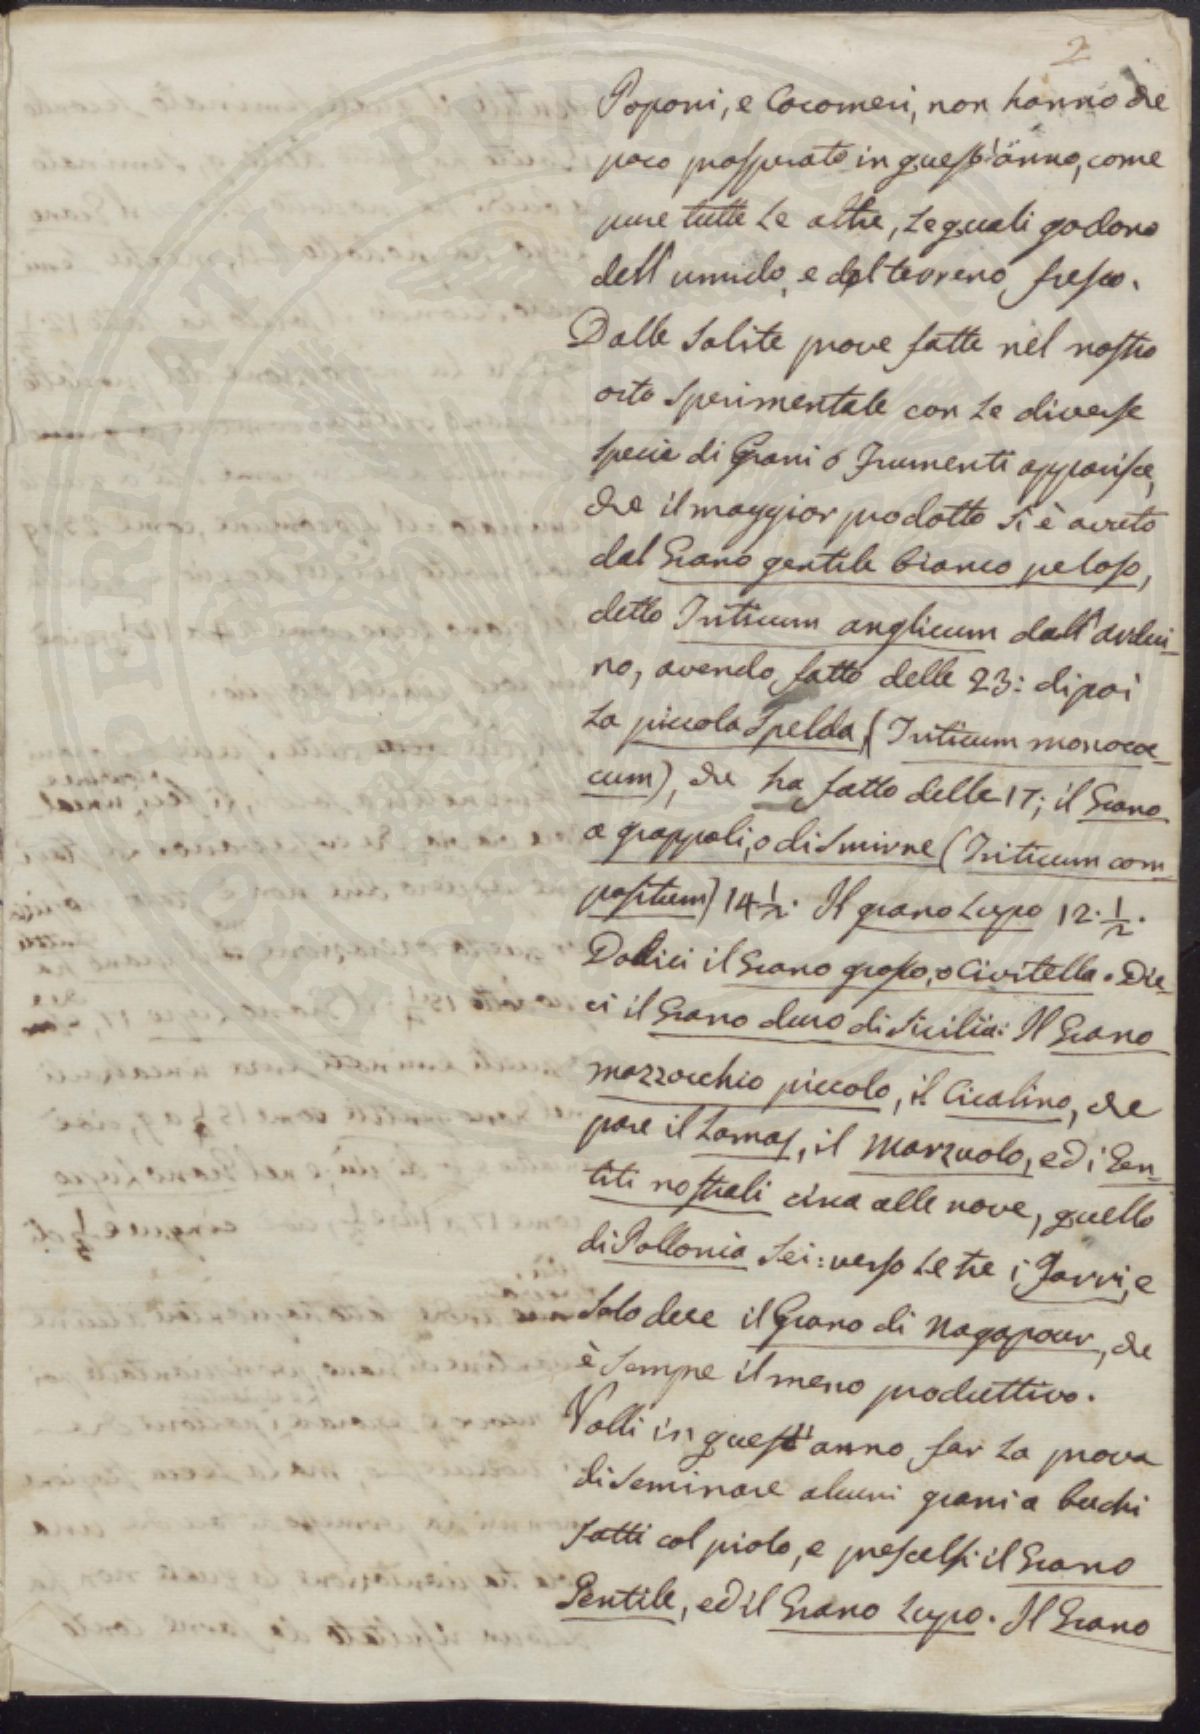 2
Poponi, e Cocomeri, non hanno che
poco prosperato in quest'anno, come
pure tutte le altre, le quali godono
dell'umido, e del terreno fresco.
Dalle solite prove fatte nel nostro
orto sperimentale con le diverse
specie di Grani o Frumenti apparisce,
che il maggior prodotto si è avuto
dal Grano gentile bianco peloso,
detto Triticum anglicum dall'Ardui-
no, avendo fatto delle 23: dipoi
la piccola Spelda (Triticum monococ-
cum), che ha fatto delle 17; il Grano
a grappoli, o di Smirne (Triticum com-
positum) 14 1/2. Il grano Lupo 12. 1/2.
Dodici il Grano grosso, o Civitella. Die-
ci il Grano duro di Sicilia: Il Grano
mazzocchio piccolo, il Cicalino, che
pare il Lamas, il Marzuolo, ed i Gen-
tili nostrali circa alle nove, quello
di Pollonia sei: verso le tre i Farri, e
solo dece il Grano di Nagapour, che
è sempre il meno produttivo.
Volli in quest'anno far la prova
di seminare alcuni grani a buchi
fatti col piolo, e prescelsi il Grano
Gentile, ed il Grano Lupo. Il Grano